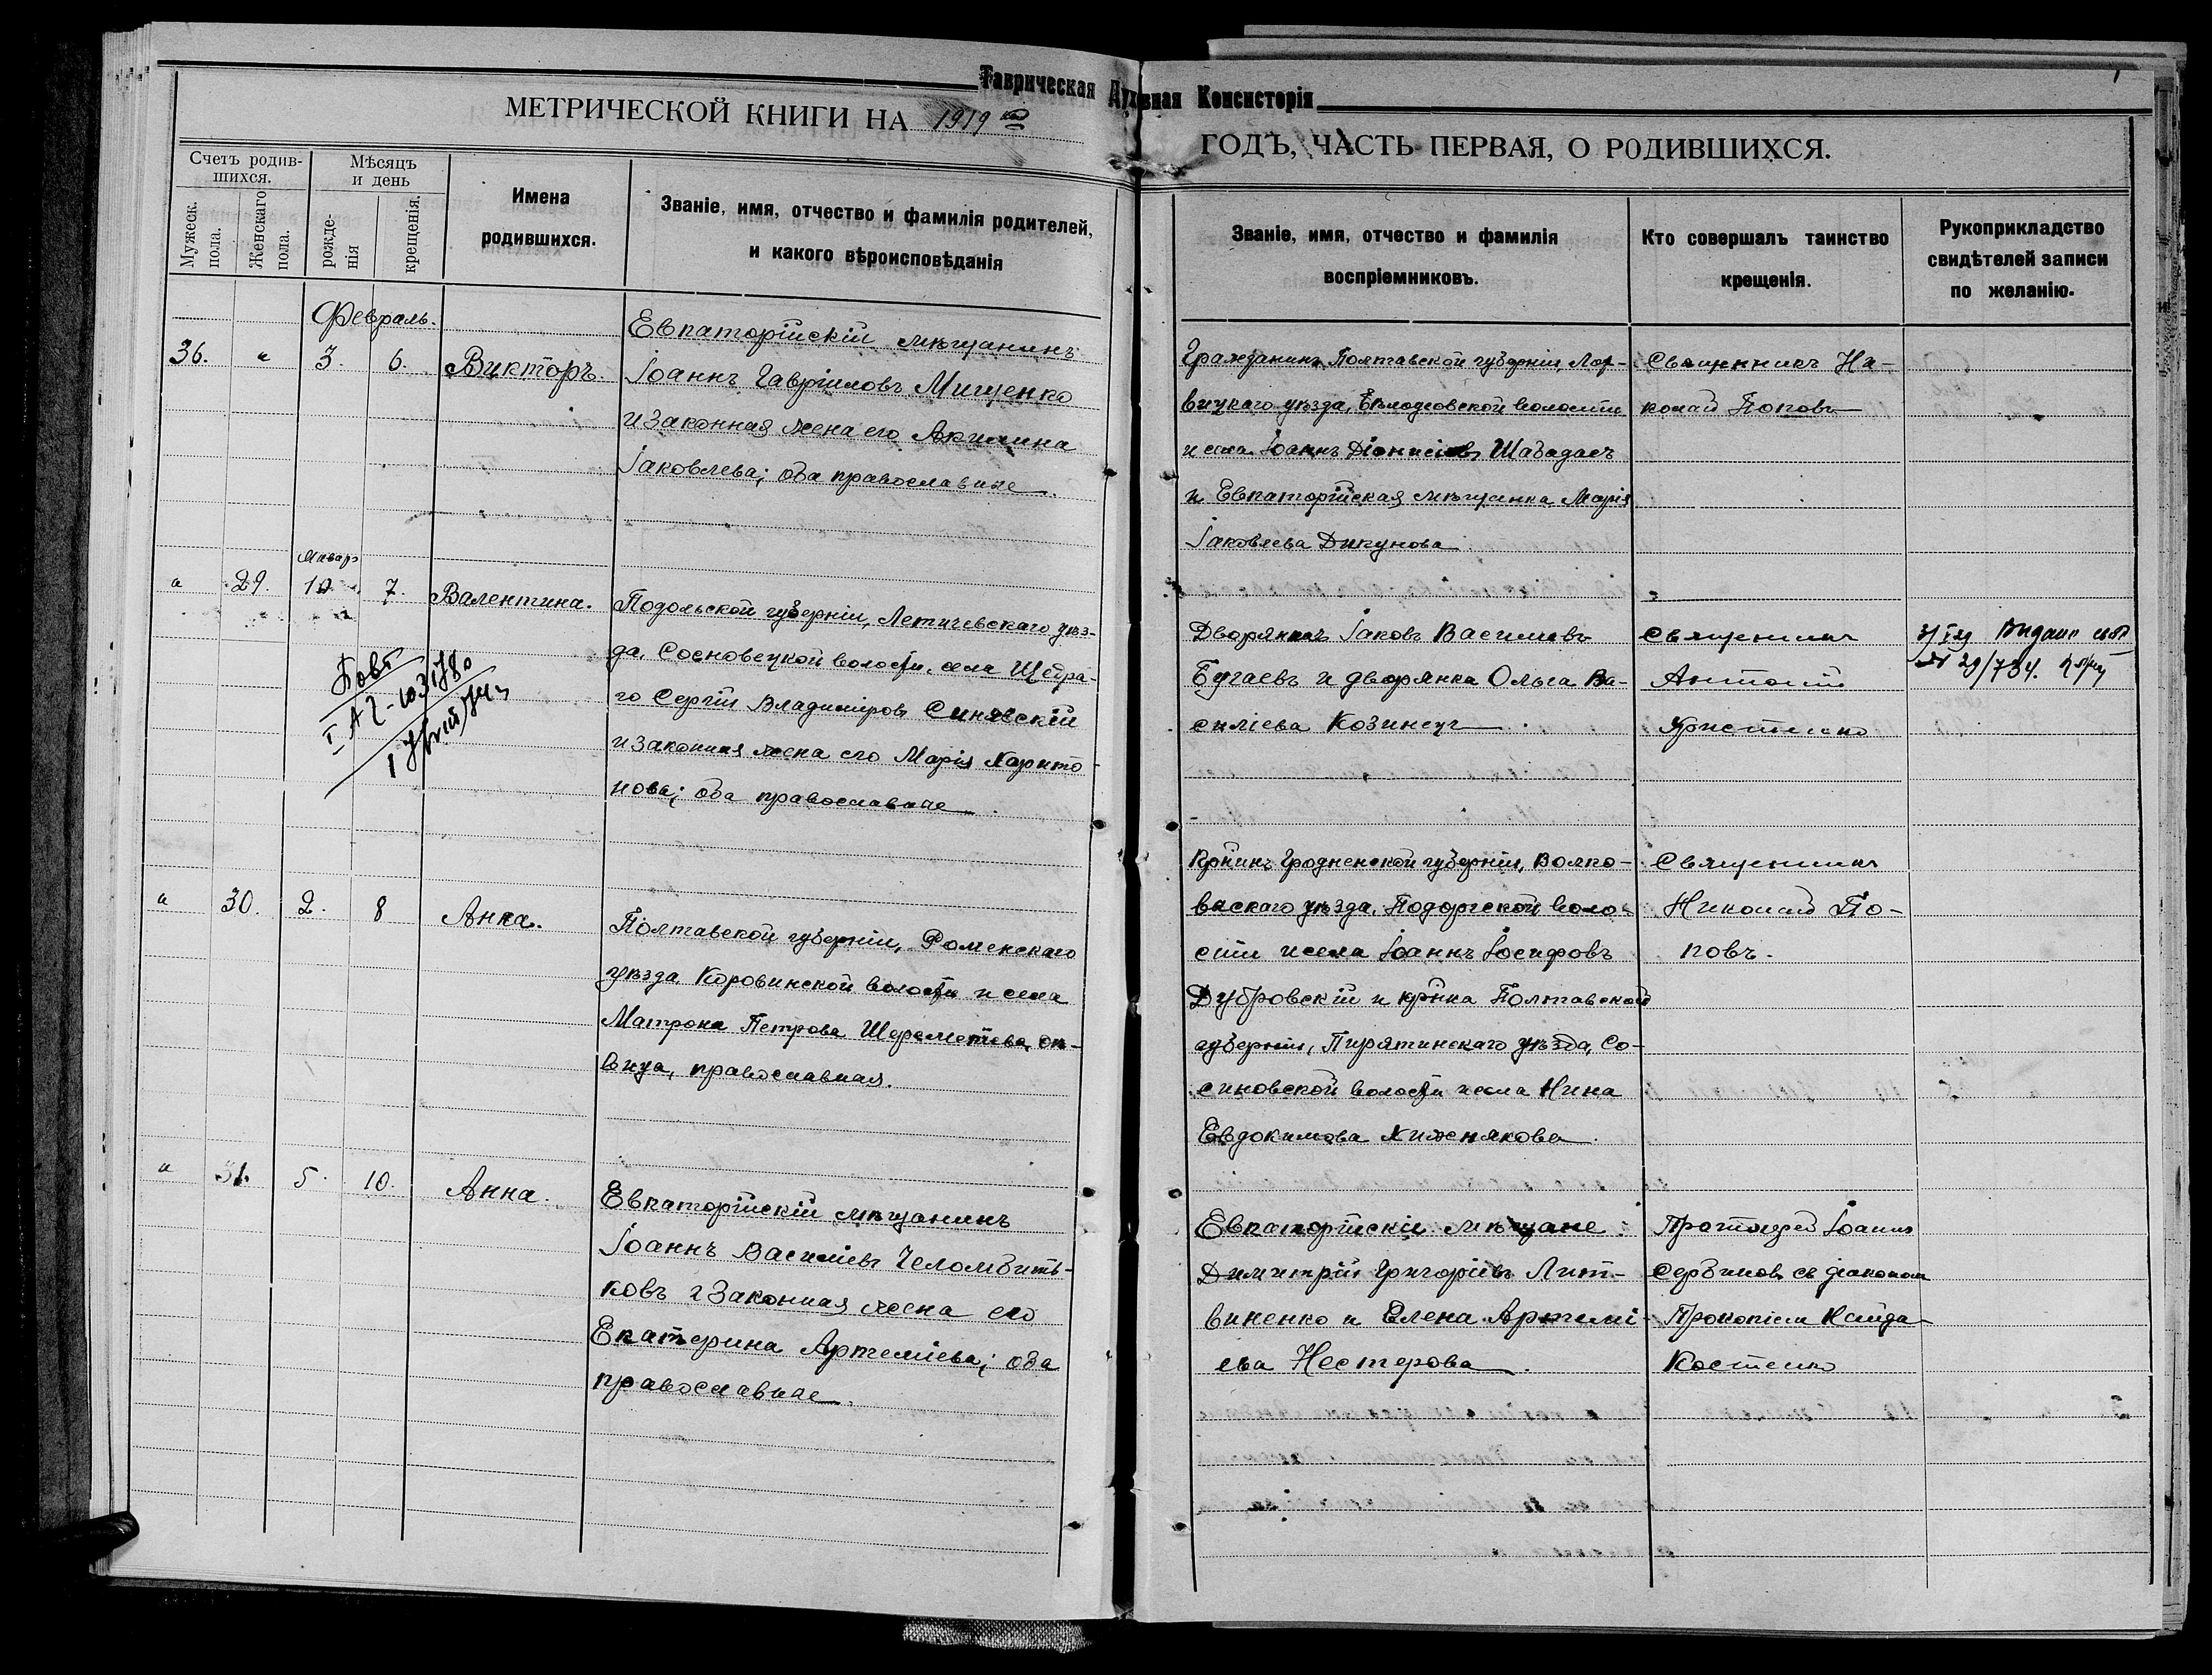 Таврическая Духовная Консисторія
МЕТРИЧЕСКОЙ КНИГИ НА 1919 й
ГОДЪ, ЧАСТЬ ПЕРВАЯ, О РОДИВШИХСЯ.
Счетъ родив-
шихся.
Мужеск.
пола.
Женскаго
пола.
Мѣсяцъ
и день
рожде-
нія
крещенія.
Имена
родившихся.
Званіе, имя, отчество и фамилія родителей,
и какого вѣроисповѣданія
Званіе, имя, отчество и фамилія
воспріемниковъ.
Кто совершалъ таинство
крещенія.
Рукоприкладство
свидѣтелей записи
по желанію.
Февраль.
36. " 3. 6. Викторъ.
Евпаторійскій мѣщанинъ
Іоаннъ Гавріиловъ Мищенко
и законная жена его Акилина
Іаковлева; оба православные.
Гражданинъ Полтавской губерніи, Лох-
вицкаго уѣзда, волости
и села Іоаннъ Діонисіевъ Шабадаег
и Евпаторійская мѣщанка Марія
Іаковлева Дикунова
Священникъ Ни-
колай Поповъ
Январь
" 29. 10 7. Валентина.
Подольской губерніи, Летичевскаго уѣз-
да, Сосновецкой волости, села Щедра-
го Сергій Владиміровъ Синявскій
и законная жена его Марія Харито-
нова; оба православные.
Дворянинъ Іаковъ Василіевъ
Бугаевъ и дворянка Ольга Ва-
силіева Козинецъ.
Священникъ
Антоній
№ 29/734.
" 30. 2. 8 Анна.
Полтавской губерніи, Роменскаго
уѣзда Коровинской волости и села
Матрона Петрова Шереметьева, дѣ-
вица, православная.
Кр-нинъ Гродненской губерніи, Волко-
выскаго уѣзда, Подорогской воло-
сти и села Іоаннъ Іосифовъ
Дубровскій и кр-нка Полтавской
губерніи, Пирятинскаго уѣзда, Со-
синовской волости и села Нина
Евдокимова Хиженякова.
Священникъ
Николай По-
повъ.
" 31. 5. 10. Анна.
Евпаторійскій мѣщанинъ
Іоаннъ Василіевъ Челомбить-
ковъ и законная жена его
Екатерина Артеміева; оба
православные.
Евпаторійскіе мѣщане:
Димитрій Григоріевъ Лит-
виненко и Елена Артемі-
ева Нестерова.
Протоіерей Іоаннъ
Сербиновъ съ діакономъ
Прокопіемъ Кайда-
Костенко